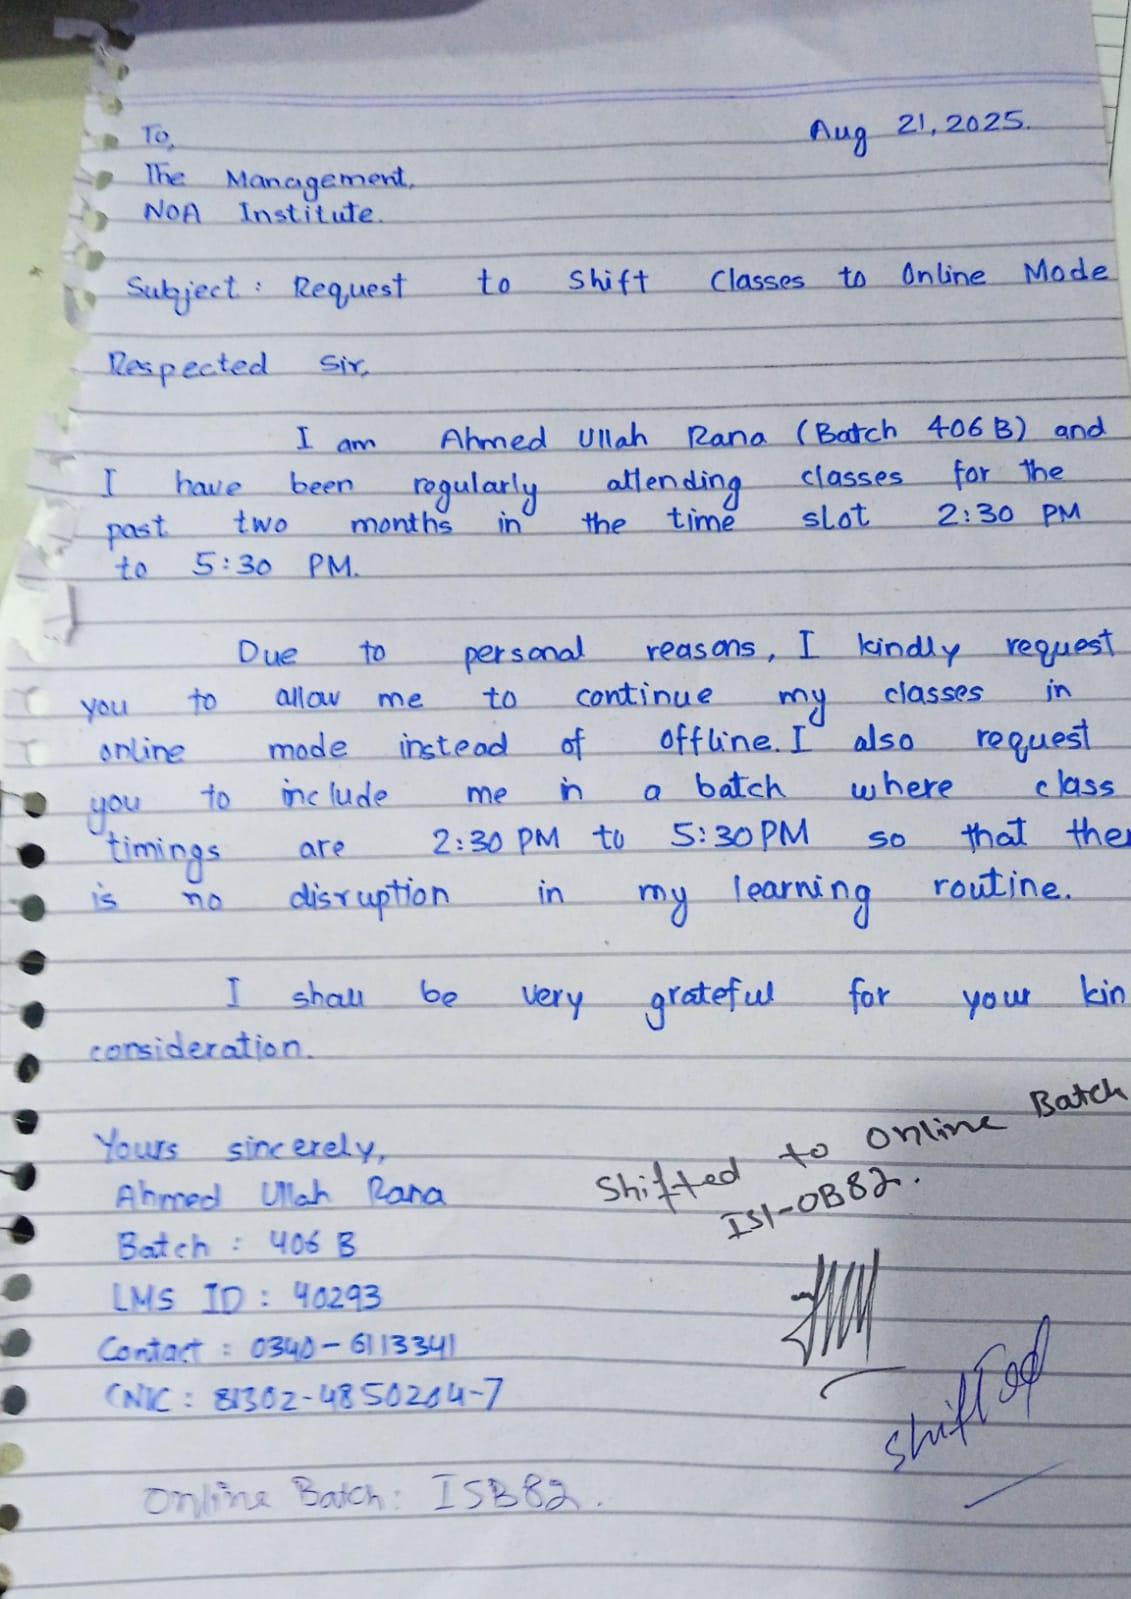 Aug 21, 2025.
To,
The Management,
NOA Institute.
Subject: Request to Shift Classes to Online Mode
Respected Sir,
I am Ahmed Ullah Rana (Batch 406 B) and
I have been regularly attending classes for the
past two months in the time slot 2:30 PM
to 5:30 PM.
Due to personal reasons, I kindly request
you to allow me to continue my classes in
online mode instead of offline. I also request
you to include me in a batch where class
timings are 2:30 PM to 5:30 PM so that the
is no disruption in my learning routine.
I shall be very grateful for your kin
consideration.
Yours sincerely,
Ahmed Ullah Rana
Batch : 406 B
LMS ID : 40293
Contact : 0340-6113341
CNIC : 81302-4850204-7
Shifted to Online Batch
ISI-OB82.
Shifted
Online Batch: ISB82.